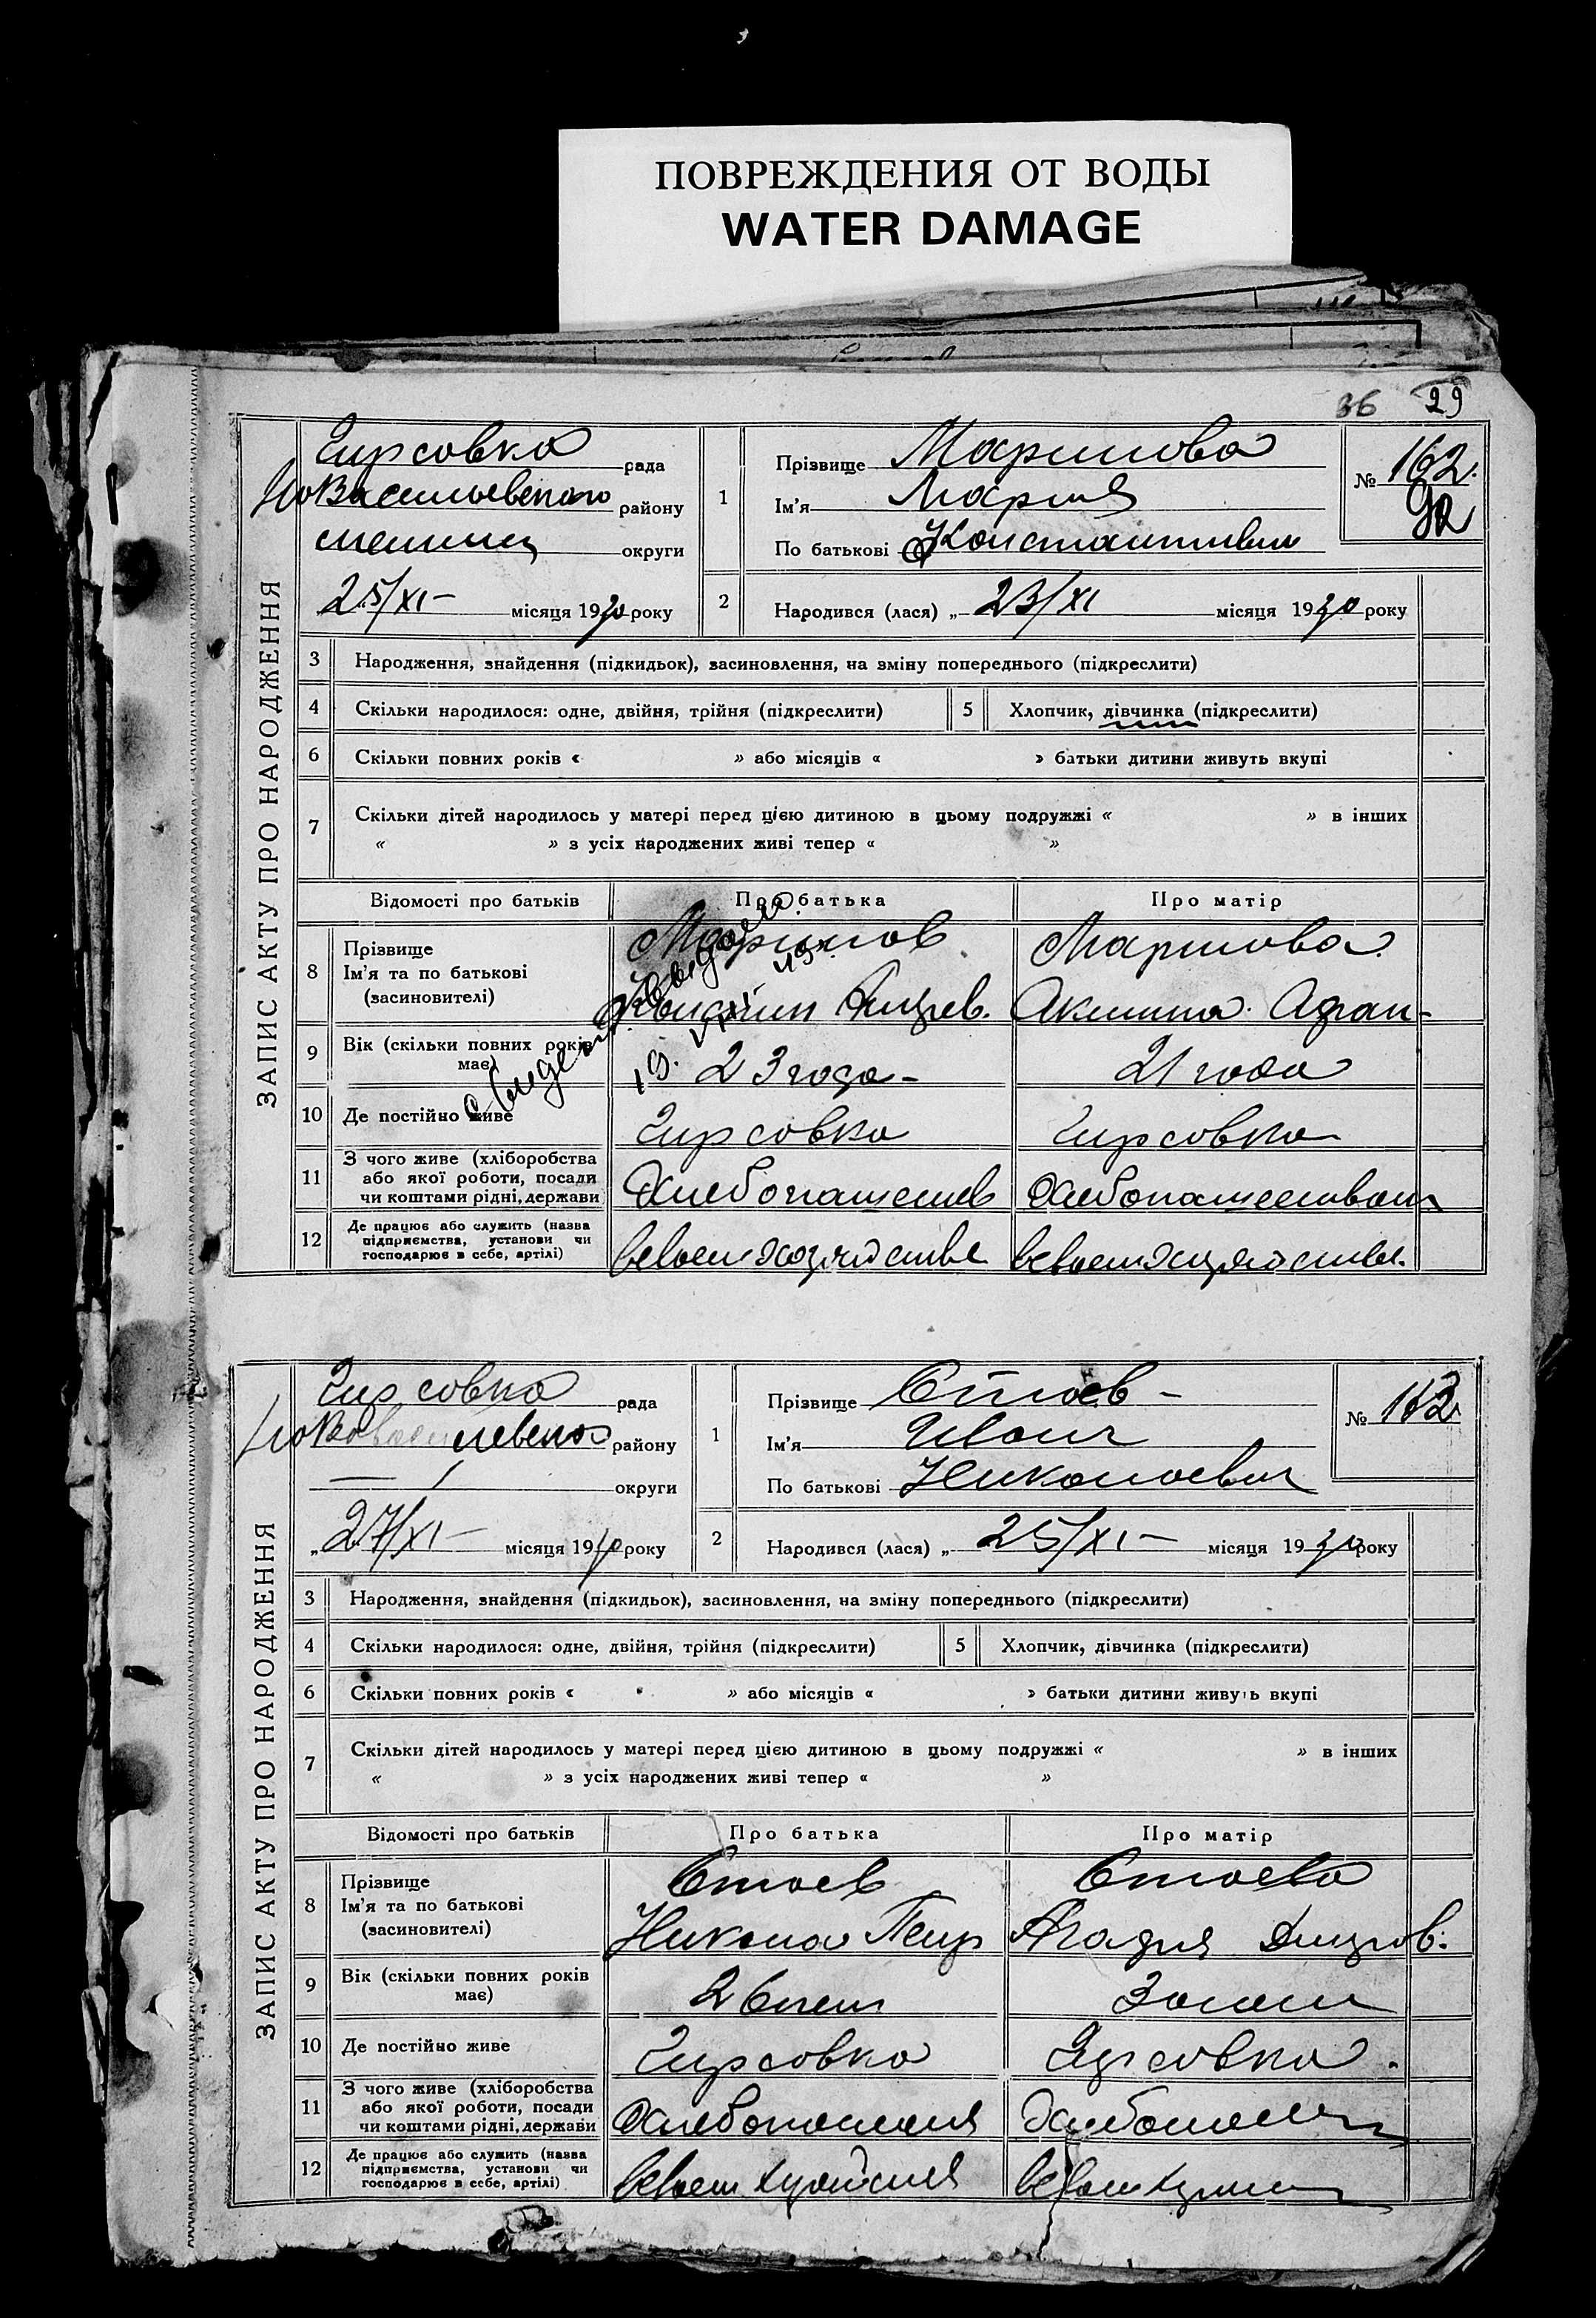 ПОВРЕЖДЕНИЯ ОТ ВОДЫ
WATER DAMAGE
36 29
ЗАПИС АКТУ ПРО НАРОДЖЕННЯ
Гирсовка рада
района району
округи
25/XI- місяця 1930 року
1
Прізвище Маринова
Ім'я Мария
По батькові Константиновн
№ 162.
92
2 Народився (лася) „ 23/XI місяця 1930 року
3 Народження, знайдення (підкидьок), засиновлення, на зміну попереднього (підкреслити)
4 Скільки народилося: одне, двійня, трійня (підкреслити) 5 Хлопчик, дівчинка (підкреслити)
6 Скільки повних років « » або місяців « » батьки дитини живуть вкупі
7 Скільки дітей народилось у матері перед цією дитиною в цьому подружжі « » в інших
« » з усіх народжених живі тепер « »
Відомості про батьків Про батька Про матір
8 Прізвище
Ім'я та по батькові
(засновителі)
Маринов Маринова
9 Вік (скільки повних років
має) 23 года- 21 года
10 Де постійно живе Гирсовка Гирсовка
11 З чого живе (хліборобства
або якої роботи, посади
чи коштами рідні, держави
Хлебопашеств Хлебопашеством
12 Де працює або служить (назва
підприємства, установи чи
господарює в себе, артілі)
в своем хозяйстве в своем хозяйстве.
ЗАПИС АКТУ ПРО НАРОДЖЕННЯ
Гирсовка рада
району
округи
„ 27/XI- місяця 1930 року
1
Прізвище Стоев-
Ім'я Иван
По батькові Николаевич
№ 163
2 Народився (лася) „ 25/XI- місяця 1930 року
3 Народження, знайдення (підкидьок), засиновлення, на зміну попереднього (підкреслити)
4 Скільки народилося: одне, двійня, трійня (підкреслити) 5 Хлопчик, дівчинка (підкреслити)
6 Скільки повних років « » або місяців « » батьки дитини живуть вкупі
7 Скільки дітей народилось у матері перед цією дитиною в цьому подружжі « » в інших
« » з усіх народжених живі тепер « »
Відомості про батьків Про батька Про матір
8 Прізвище
Ім'я та по батькові
(засиновителі)
Стоев Стоева
Никола Петр
9 Вік (скільки повних років
має) 26 лет 30 лет
10 Де постійно живе Гирсовка Гирсовка.
11 З чого живе (хліборобства
або якої роботи, посади
чи коштами рідні, держави
12 Де працює або служить (назва
підприємства, установи чи
господарює в себе, артілі)